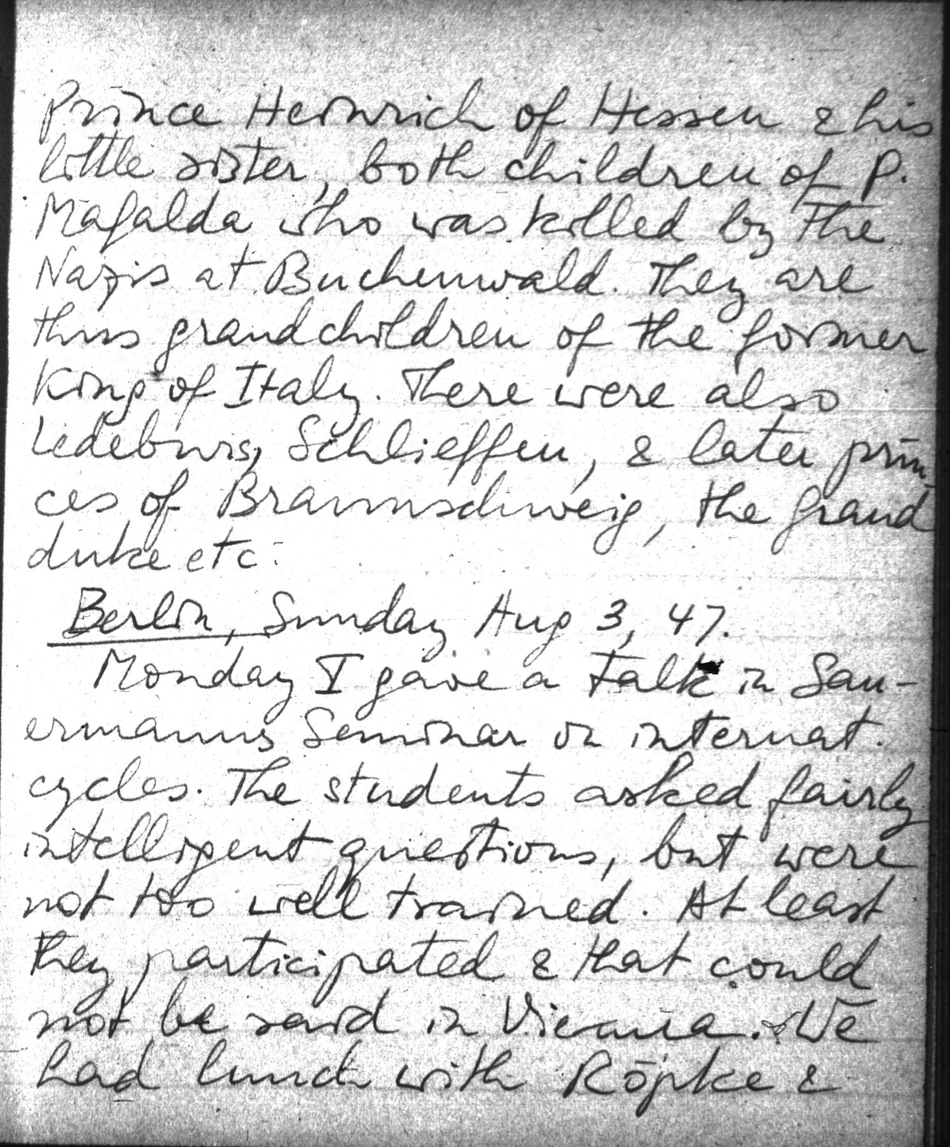 Prince Heinrich of Hessen & his
little sister, both children of P.
Mafalda who was killed by the
Nazis at Buchenwald. They are
thus grandchildren of the former
King of Italy. There were also
Ledeburs, Schlieffen, & later prin-
ces of Braunschweig, the grand
duke etc.
Berlin, Sunday Aug 3, 47.
Monday I gave a talk in Sau-
ermanns Seminar on internat.
cycles. The students asked fairly
intelligent questions, but were
not too well trained. At least
they participated & that could
not be said in Vienna. We
had lunch with Röpke &